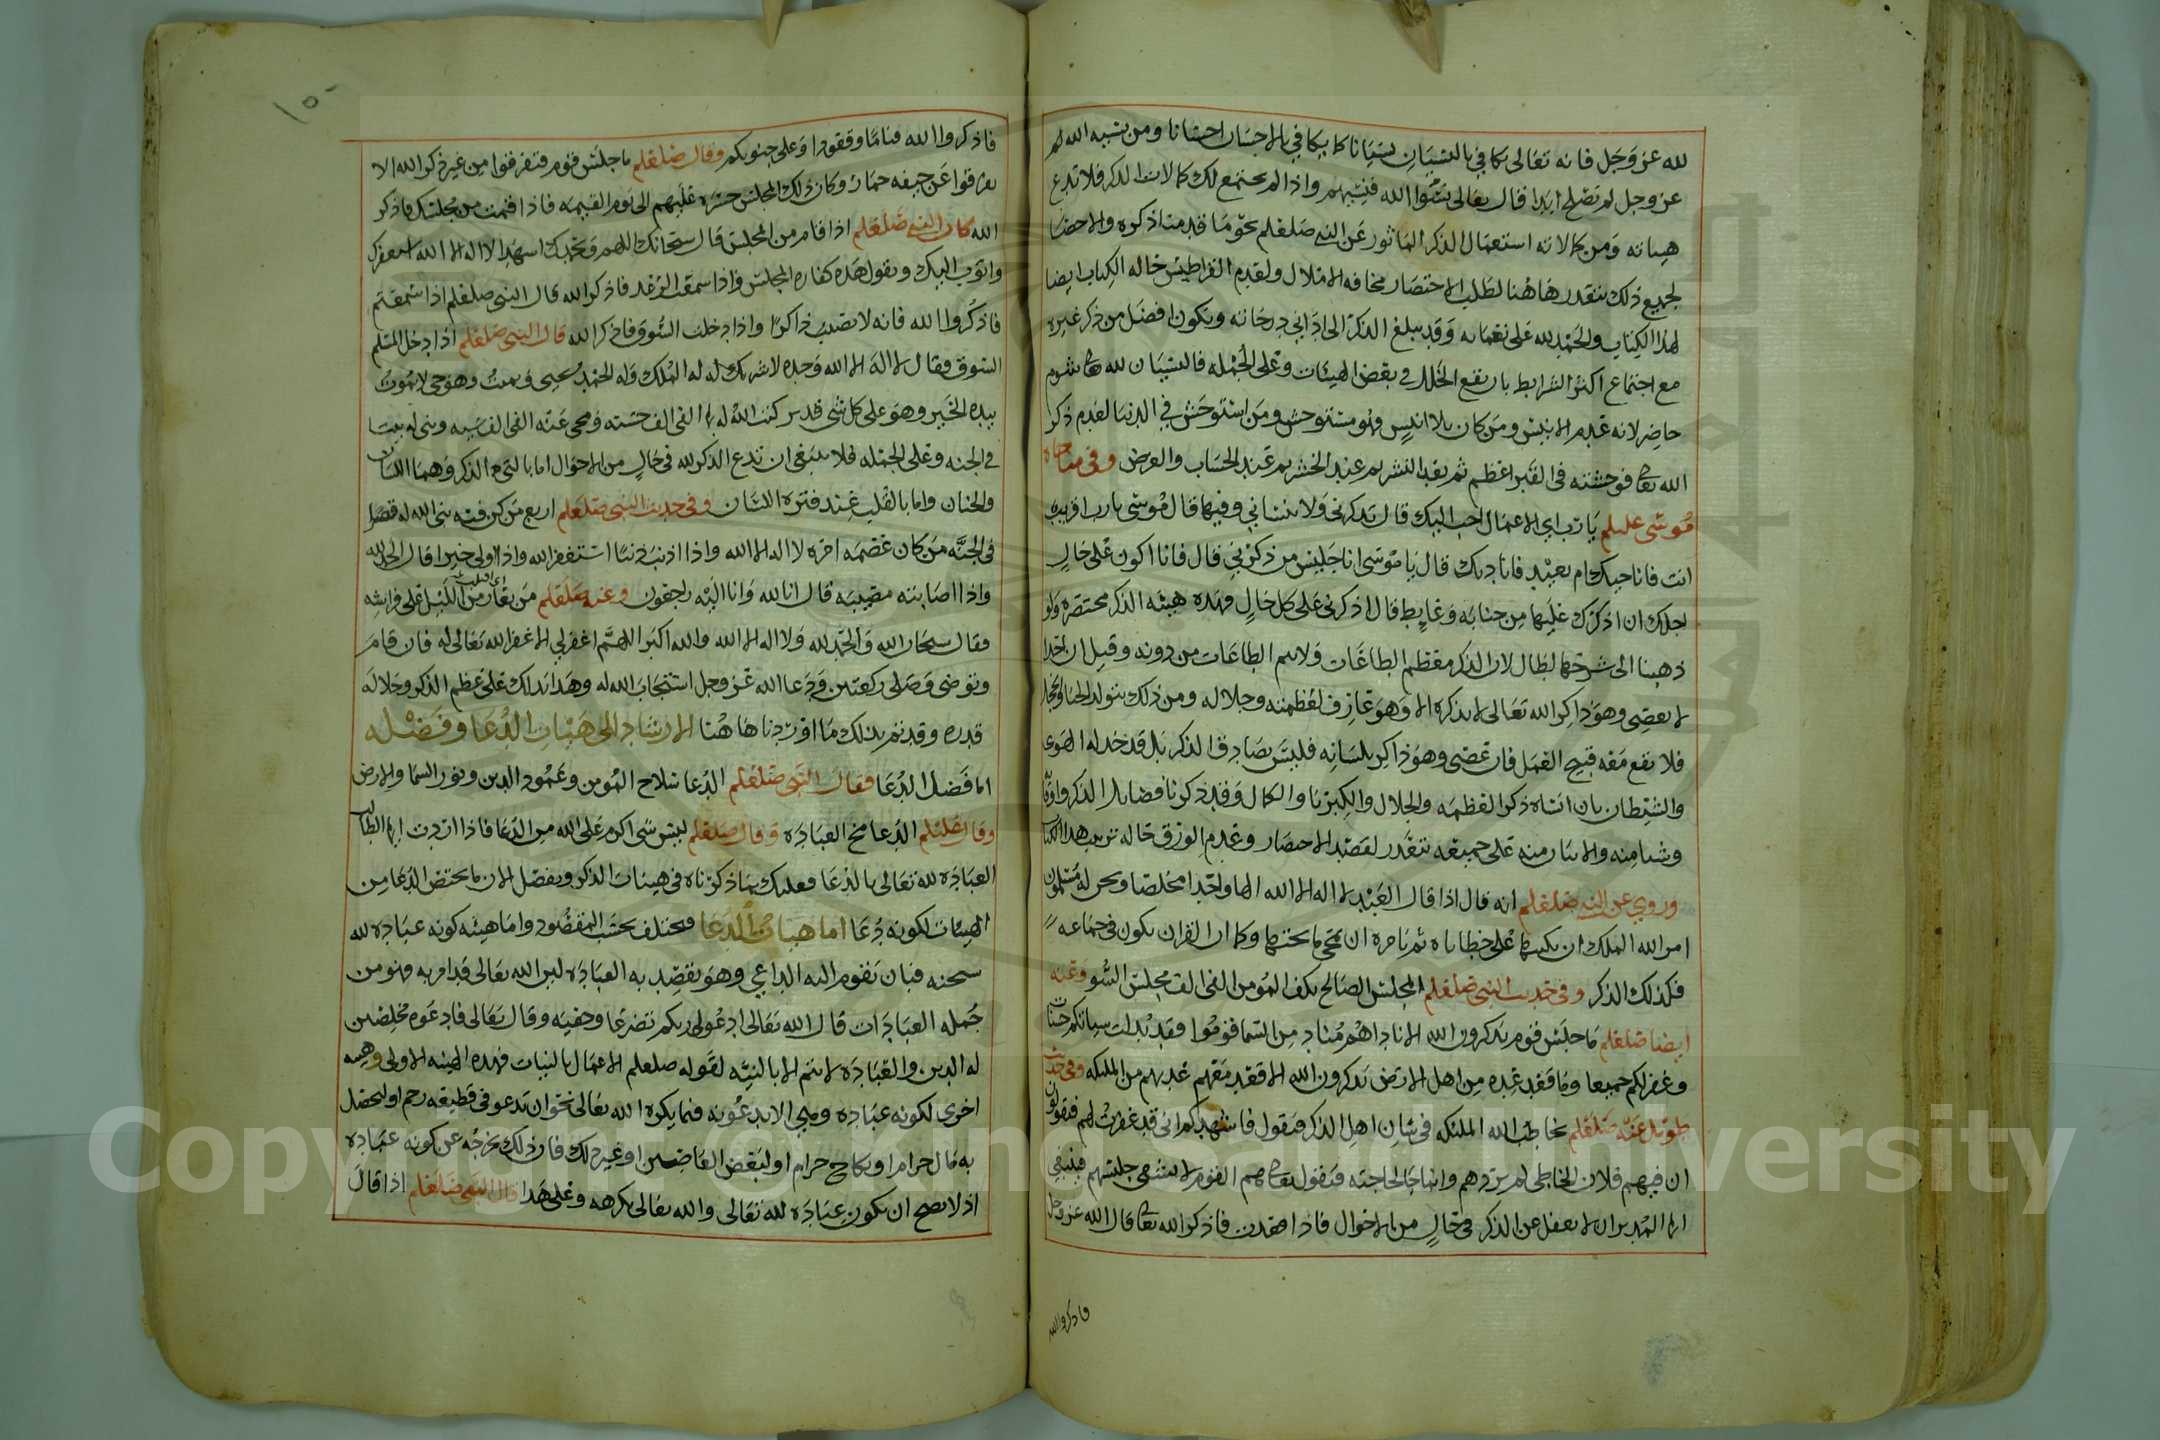 لله عز وجل فانه تعالى يكافي بالنسيان نسيانا كما يكافي بالاحسان احسانا ومن نسيه الله لم
عز وجل لم تصلح ابدا قال تعالى نسوا الله فنسيهم واذا لم يجتمع لك كمالات الذكر فلا تدع
هيئاته ومن كمالاته استعمال الذكر الماثور عن النبي صلعلم نحو ما قدمت اذكره والاحصا
لجميع ذلك يتعذر هاهنا لطلب الاختصار مخافه الاملال ولعدم القراطيس حاله الكتاب ايضا
لهذا الكتاب والحمد لله على نعمائه وقد يبلغ الذكر الى اداني درجاته ويكون افضل من ذكر غيره
مع اجتماع اكثر الشرايط بان يقع الخلل في بعض الهيئات وعلى الجمله فالنسيان لله شوم
حاضر لانه عديم الانيس ومن كان بلا انيس فهو مستوحش ومن استوحش في الدنيا لعدم ذكر
الله تعا فوحشته في القبر اعظم ثم بعد النشر ثم عند الحشر ثم عند الحساب والعرض وفي مناجاه
موسى عليلم يا رب اي الاعمال احب اليك قال تذكرني ولا تنساني وفيها قال موسى يا رب اقريب
انت فاناجيك ام بعيد فاناديك قال يا موسى انا جليس من ذكرني قال فانا اكون على حال
اجلك ان اذكرك عليها من جنابه وغايط قال اذكرني على كل حال وهذه هيئه الذكر مختصره ولو
ذهبنا الى شرحها لطال لان الذكر معظم الطاعات ولا تتم الطاعات من دونه وقيل ان احدا
لا يعصي وهو ذاكر الله تعالى لا يذكره الا وهو عارف لعظمته وجلاله ومن ذلك يتولد الحيا
فلا يقع معه قبيح العمل فان عصى وهو ذاكر بلسانه فليس بصادق الذكر بل قد خدله الهوى
والشيطان بان انساه ذكر العظمه والجلال والكبريا والكمال وقد ذكرنا فضايل الذكر
وشيا منه والاتيان منه على جميعه يتعذر لقصد الاختصار وعدم الورق حاله هذا الكتاب
وروي عن النبي صلعلم انه قال اذا قال العبد لا اله الا الله الها واحدا مخلصا ونحن له مسلمون
امر الله الملك ان يكتبها على خطاياه ثم يامره ان يمحي ما تحتها وكما ان القران يكون في جماعه
فكذلك الذكر وفي حديث النبي صلعلم المجلس الصالح يكفر المومن الفي الف مجلس السو وعنه
ايضا صلعلم ما جلس قوم يذكرون الله الا ناداهم مناد من السما قوموا فقد بدلت سياتكم حسنات
وغفر لكم جميعا وما قعد عده من اهل الارض يذكرون الله الا قعد معهم عديهم من الملئكه وفي حديث
طويل عنه صلعلم يخاطب الله الملئكه في شان اهل الذكر فيقول فاشهدكم اني قد غفرت لهم فيقولون
ان فيهم فلان الخاطي لم يردهم وانما جا لحاجته فيقول تعا هم القوم لا يشقى جليسهم فينبغي
ايها المريد ان لا تغفل عن الذكر في حال من الاحوال فاذا قعدت فاذكر الله تعا قال الله عز وجل
فاذكروا الله
فاذكروا الله قياما وقعودا وعلى جنوبكم وقال صلعلم ما جلس قوم فتفرقوا من غير ذكر الله الا
تفرقوا عن جيفه حمار وكان ذلك المجلس حسره عليهم الى يوم القيمه فاذا قمت من مجلسك فاذكر
الله كان النبي صلعلم اذا قام من المجلس قال سبحانك اللهم وبحمدك اشهد الا اله الا الله استغفرك
واتوب اليك ويقول هذه كفاره المجلس واذا سمعت الرعد فاذكر الله قال النبي صلعلم اذا سمعتم
فاذكروا الله فانه لا يصيب ذاكرا واذا دخلت السوق فاذكر الله قال النبي صلعلم اذا دخل المسلم
السوق فقال لا اله الا الله وحده لا شريك له له الملك وله الحمد يحيي ويميت وهو حي لا يموت
بيده الخير وهو على كل شي قدير كتب الله له بها الفي الف حسنه ومحي عنه الفي الف سيه وبنى له بيتا
في الجنه وعلى الجمله فلا ينبغي ان تدع الذكر لله في حال من الاحوال اما بالتي مع الذكر وهما اللسان
والجنان واما بالقلب عند فتره اللسان وفي حديث النبي صلعلم اربع من كن فيه بنى الله له قصرا
في الجنه من كان عصمه امره لا اله الا الله واذا اذنب ذنبا استغفر الله واذا اولي خيرا قال الحمد لله
واذا اصابته مصيبه قال انا لله وانا اليه راجعون وعنه صلعلم من تعار من الليل على فراشه
فقال سبحان الله والحمد لله ولا اله الا الله والله اكبر اللهم اغفر لي الا غفر الله تعالى له فان قام
وتوضى وصلى ركعتين ودعا الله عز وجل استجاب الله له وهذا يدلك على عظم الذكر وجلاله
قدره وقد تم بذلك ما اوردنا هاهنا الارشاد الى هيات الدعا وفضله
اما فضل الدعا فقال النبي صلعلم الدعا سلاح المومن وعمود الدين ونور السما والارض
وقال عليلم الدعا مخ العباده وقال صلعلم ليس شي اكرم على الله من الدعا فاذا اردت ايها الطالب
العباده لله تعالى بالدعا فعليك بما ذكرناه في هيئات الذكر ونفصل الان ما يختص الدعا من
الهيئات لكونه دعا اما هيات الدعا فتختلف بحسب المقصود واما هيئه كونه عباده لله
سبحنه فبان يقوم اليه الداعي وهو يقصد به العباده لان الله تعالى قد امر به وهو من
جمله العبادات قال الله تعالى ادعوا ربكم تضرعا وخفيه وقال تعالى فادعوه مخلصين
له الدين والعباده لا تتم الا بالنيه لقوله صلعلم الاعمال بالنيات فهذه الهيئه الاولى وهيئه
اخرى لكونه عباده وهي الا يدعونه فيما يكره الله تعالى نحو ان تدعو في قطيعه رحم او ليحصل
به مال حرام او نكاح حرام او لبعض العاصين او غير ذلك فان ذلك يخرجه عن كونه عباده
اذ لا يصح ان يكون عباده لله تعالى والله تعالى يكرهه وعلى هذا قال النبي صلعلم اذا قال
Copyright © King Saud University